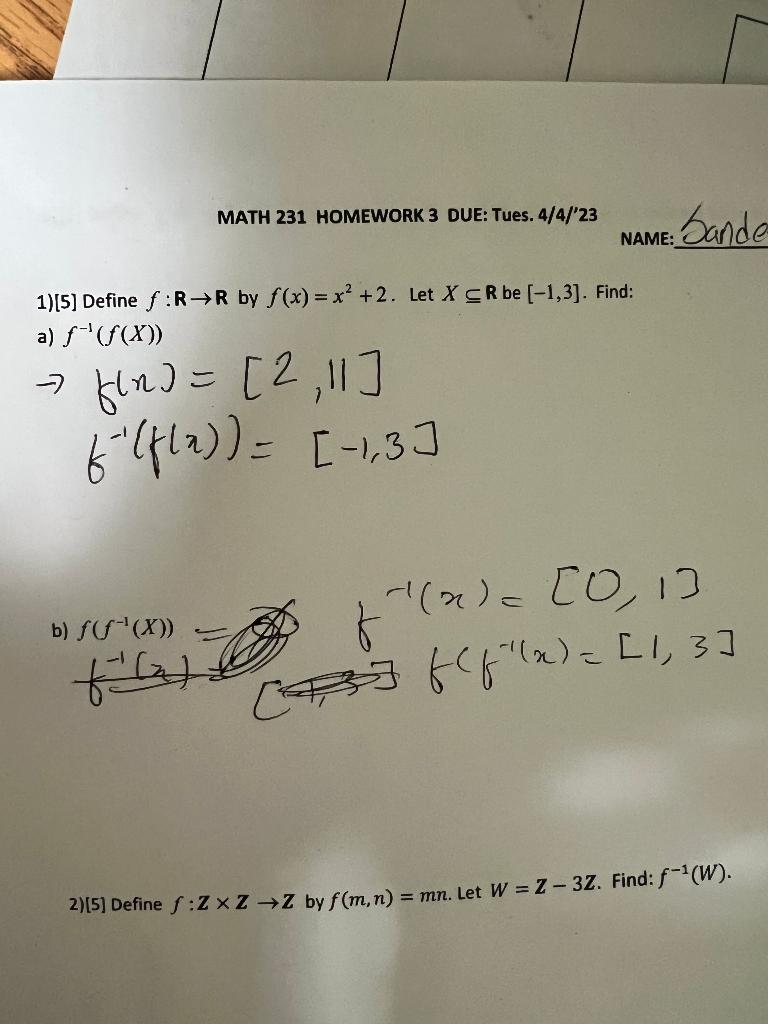 MATH 231 HOMEWORK 3 DUE: Tues. 4/4/'23
NAME: Sande
1)[5] Define f : R→R by f(x) = x² + 2. Let X ⊆ R be [−1,3]. Find:
a) f⁻¹(f(X))
→ f(x) = [2, 11]
f⁻¹(f(x)) = [-1,3]
b) f(f⁻¹(X)) =
f⁻¹(x) = [0, 1]
f⁻¹(x)
f(f⁻¹(x) = [1, 3]
2)[5] Define f : Z × Z → Z by f(m,n) = mn. Let W = Z − 3Z. Find: f⁻¹(W).